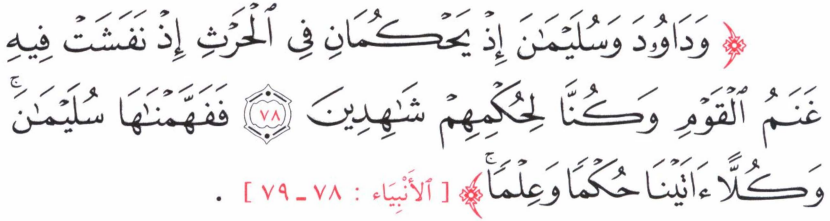 ﴿ وَدَاوُۥدَ وَسُلَيْمَٰنَ إِذْ يَحْكُمَانِ فِى ٱلْحَرْثِ إِذْ نَفَشَتْ فِيهِ
غَنَمُ ٱلْقَوْمِ وَكُنَّا لِحُكْمِهِمْ شَٰهِدِينَ ﴿٧٨﴾ فَفَهَّمْنَٰهَا سُلَيْمَٰنَۚ
وَكُلًّا ءَاتَيْنَا حُكْمًا وَعِلْمًاۚ ﴾ [ ٱلْأَنْبِيَاء : ٧٨ ـ ٧٩ ] .